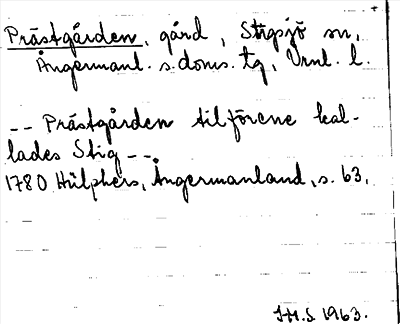 Prästgården, gård, Stigsjö sn,
Ångermanl. s. doms. tg, Vrnl. l.
-- Prästgården tilförene kal-
lades Stig --
1780 Hülphers, Ångermanland, s. 63.
J.H.S 1963.